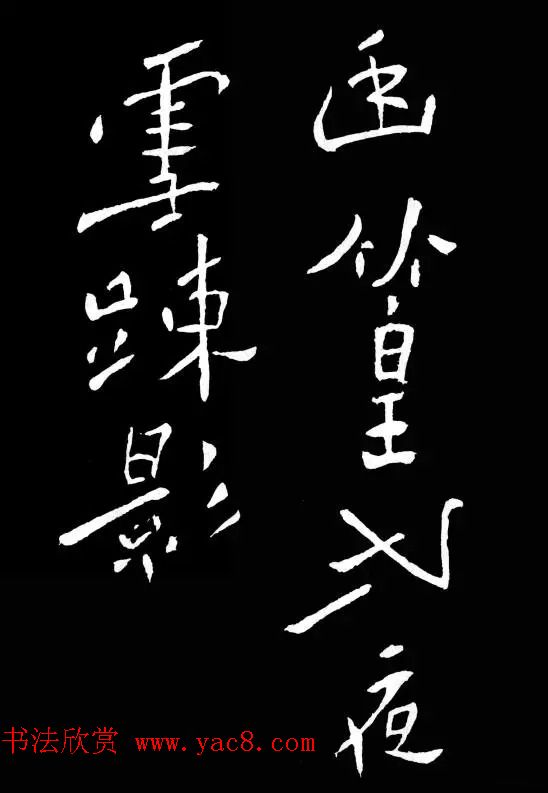 幽篁弌夜
雪踈影
书法欣赏 www.yac8.com